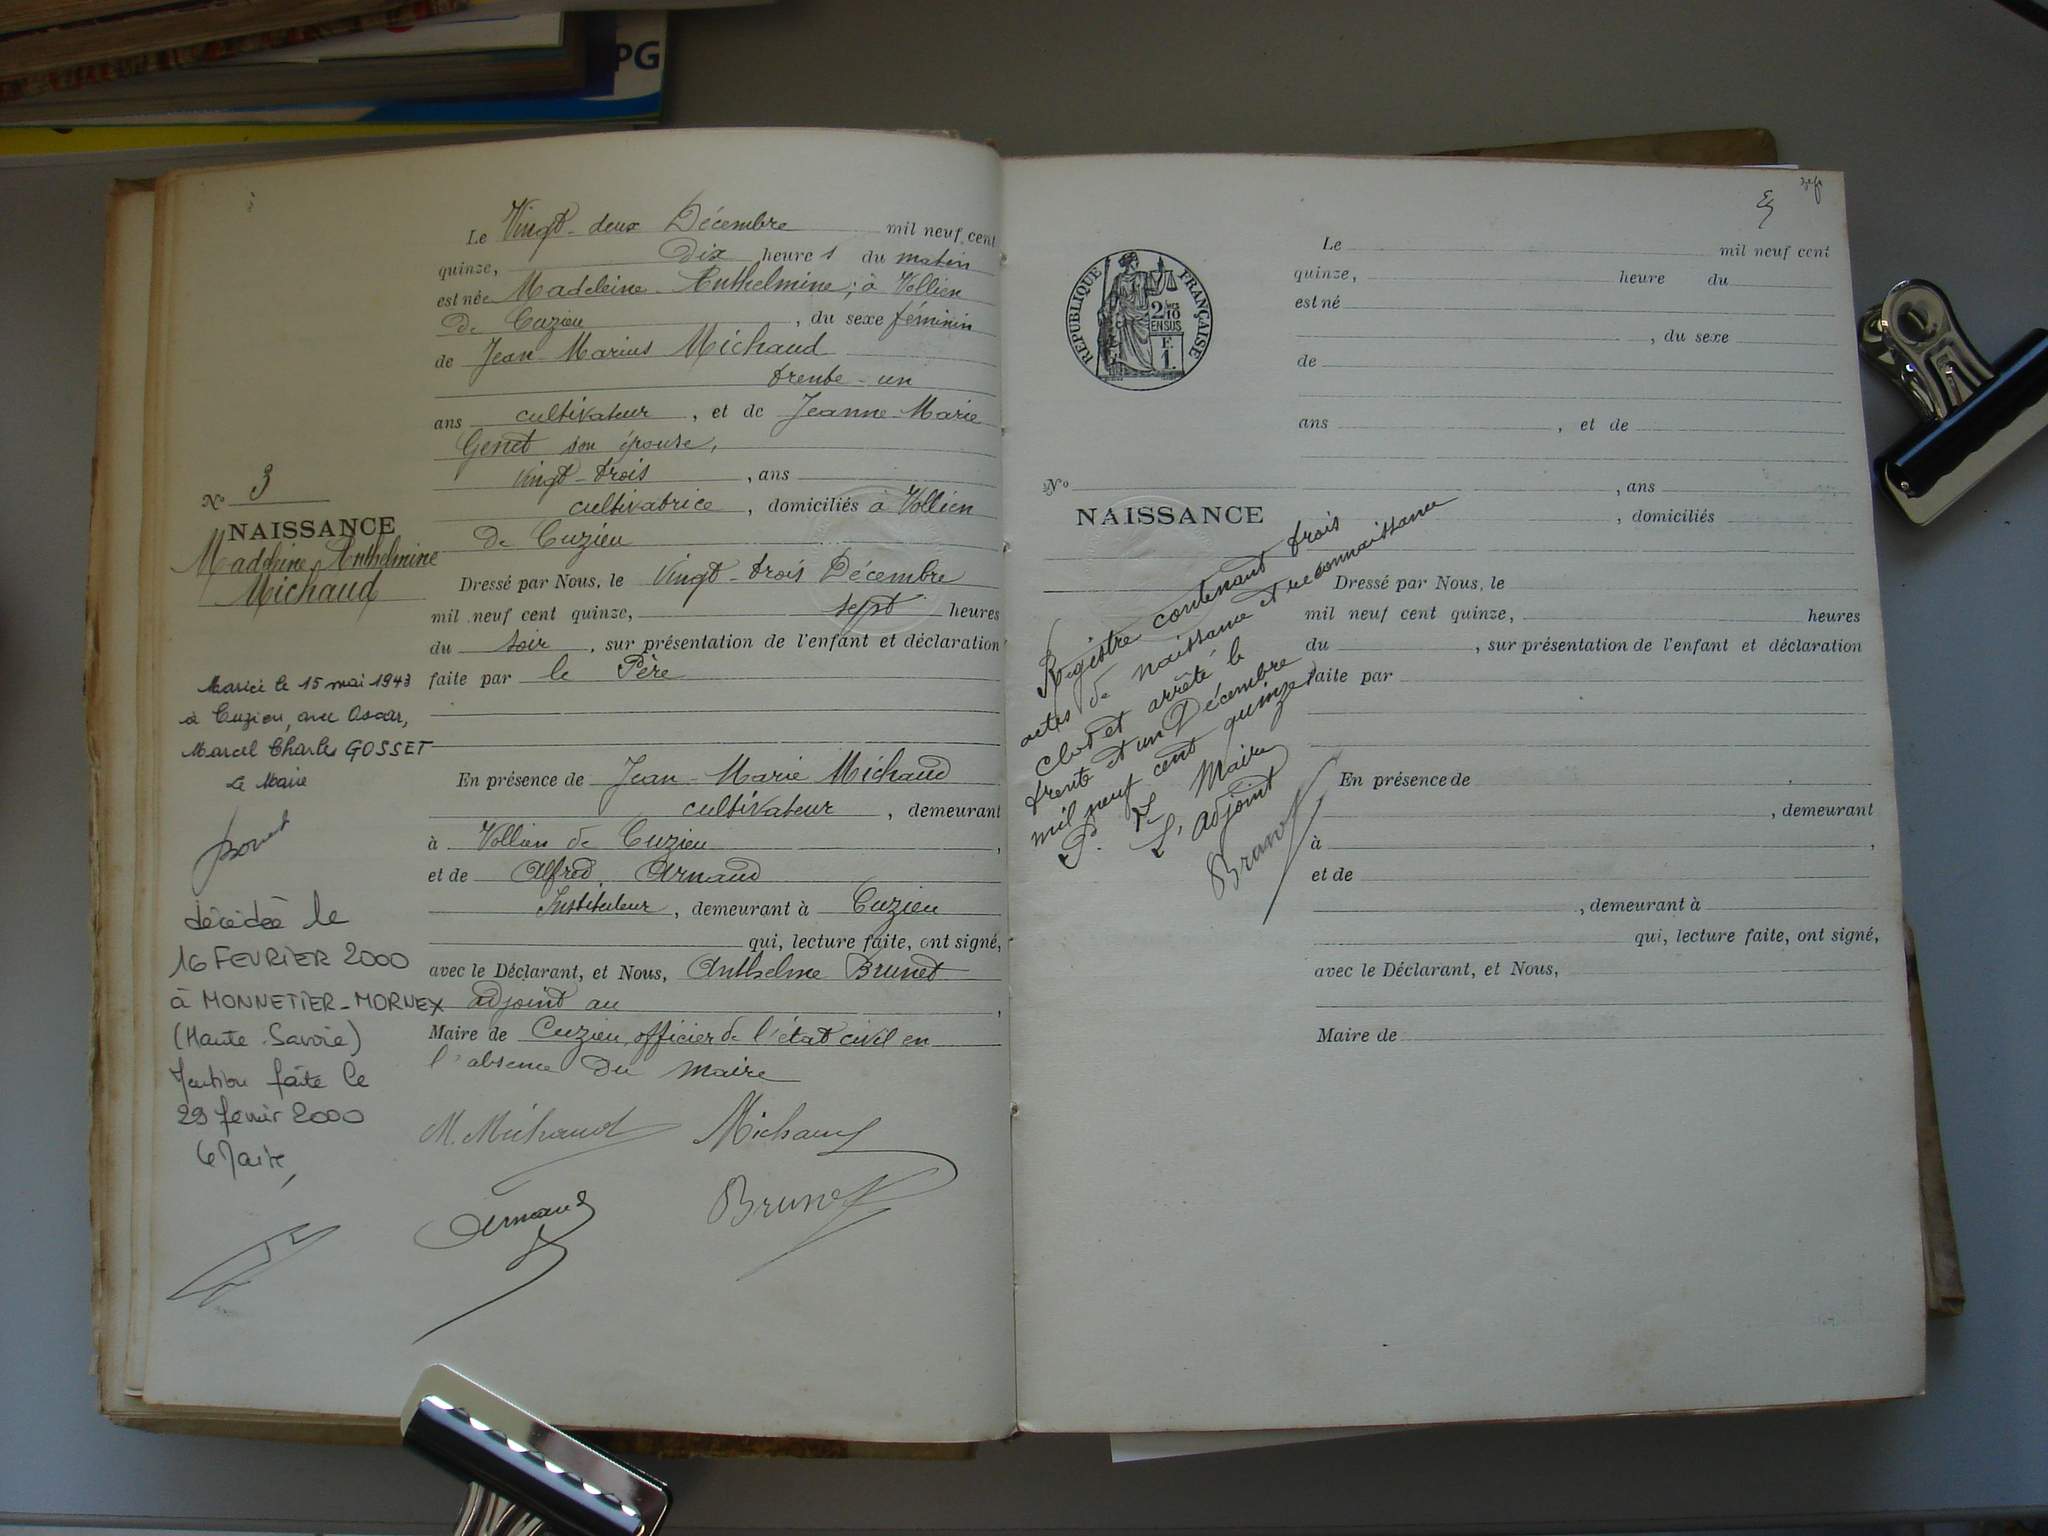 PG
Le Vingt-deux Décembre mil neuf cent
quinze, Dix heures du matin
est née Madeleine Anthelmine, à Vollien
De Cuzieu, du sexe féminin
de Jean-Marius Michaud
trente-un
ans cultivateur, et de Jeanne-Marie
Genet son épouse,
vingt-trois, ans
cultivatrice, domiciliés à Vollien
De Cuzieu
Dressé par Nous, le Vingt-trois Décembre
mil neuf cent quinze, sept heures
du soir, sur présentation de l'enfant et déclaration
faite par le Père
En présence de Jean-Marie Michaud
cultivateur, demeurant
à Vollien de Cuzieu,
et de Alfred Arnaud
Instituteur, demeurant à Cuzieu
qui, lecture faite, ont signé,
avec le Déclarant, et Nous, Anthelme Brunet
adjoint au,
Maire de Cuzieu, officier de l'état civil en
l'absence du Maire
M. Michaud Michaud
Arnaud Brunet
No 3
NAISSANCE
Madeleine Anthelmine
Michaud
Mariée le 15 mai 1943
à Cuzieu, avec Oscar,
Marcel Charles GOSSET
Le Maire
décédée le
16 FEVRIER 2000
à MONNETIER-MORNEX
(Haute Savoie)
Mention faite le
29 février 2000
Le Maire,
RÉPUBLIQUE FRANÇAISE
2/10
EN SUS
F.
1.
Le mil neuf cent
quinze, heure du
est né
, du sexe
de
ans , et de
No , ans
NAISSANCE , domiciliés
Dressé par Nous, le
mil neuf cent quinze, heures
du , sur présentation de l'enfant et déclaration
faite par
En présence de
, demeurant
à ,
et de
, demeurant à
qui, lecture faite, ont signé,
avec le Déclarant, et Nous,
Maire de
Registre contenant trois
actes de naissance et reconnaissance
clos et arrêté le
trente et un Décembre
mil neuf cent quinze
P. Le Maire
L'adjoint
Brunet